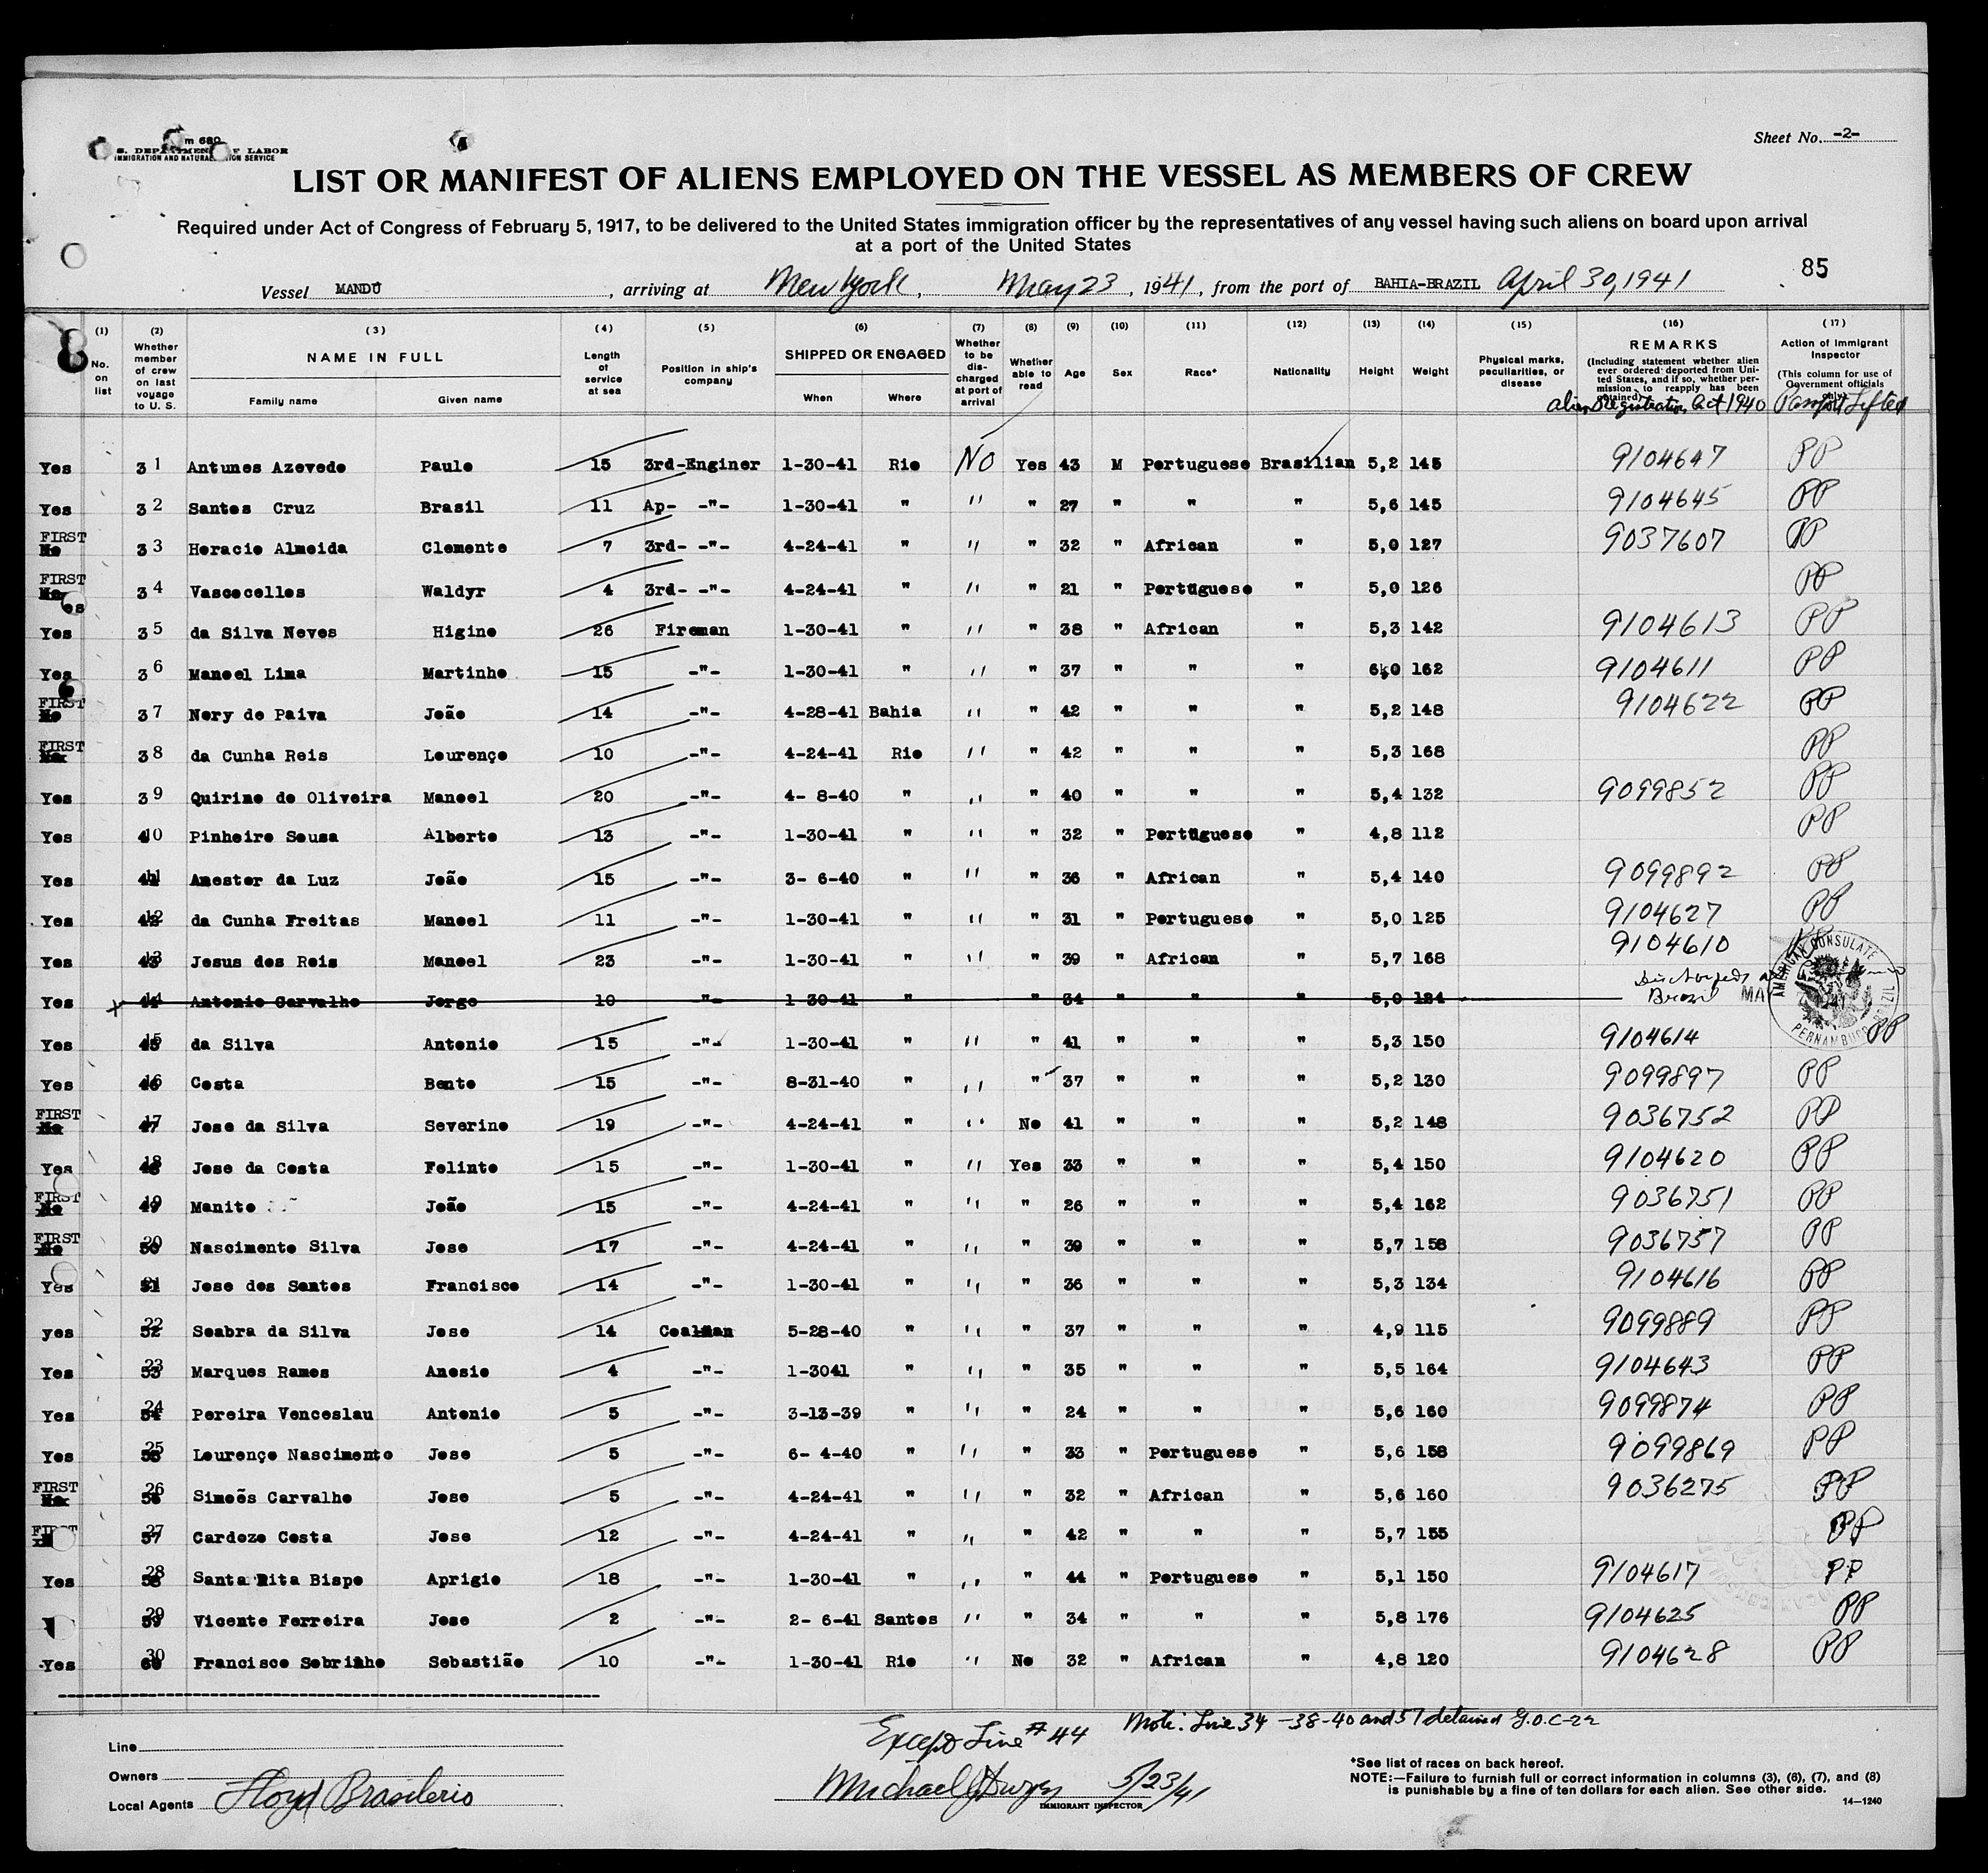 m 680
Sheet No. -2-
S. DEPARTMENT OF LABOR
IMMIGRATION AND NATURALIZATION SERVICE
LIST OR MANIFEST OF ALIENS EMPLOYED ON THE VESSEL AS MEMBERS OF CREW
Required under Act of Congress of February 5, 1917, to be delivered to the United States immigration officer by the representatives of any vessel having such aliens on board upon arrival
at a port of the United States
85
Vessel MANDÚ, arriving at New York, May 23, 1941, from the port of BAHIA-BRAZIL April 30, 1941
(1) (2) (3) (4) (5) (6) (7) (8) (9) (10) (11) (12) (13) (14) (15) (16) (17)
No. on list
Whether member of crew on last voyage to U. S.
NAME IN FULL
Family name Given name
Length of service at sea
Position in ship's company
SHIPPED OR ENGAGED
When Where
Whether to be discharged at port of arrival
Whether able to read
Age
Sex
Race*
Nationality
Height
Weight
Physical marks, peculiarities, or disease
REMARKS
(Including statement whether alien ever ordered deported from United States, and if so, whether permission to reapply has been obtained)
Alien Registration Act 1940
Action of Immigrant Inspector
(This column for use of Government officials only)
Passport Lifted
Yes 3 1 Antunes Azevedo Paulo 15 3rd-Enginer 1-30-41 Rio NO Yes 43 M Portuguese Brasilian 5,2 145 9104647 PP
Yes 3 2 Santos Cruz Brasil 11 Ap- -"- 1-30-41 " " " 27 " " " 5,6 145 9104645 PP
FIRST No 3 3 Horacio Almeida Clemente 7 3rd- -"- 4-24-41 " " " 32 " African " 5,0 127 9037607 PP
FIRST 3 4 Vascocellos Waldyr 4 3rd- -"- 4-24-41 " " " 21 " Portuguese " 5,0 126 PP
Yes 3 5 da Silva Neves Higino 26 Fireman 1-30-41 " " " 38 " African " 5,3 142 9104613 PP
Yes 3 6 Manoel Lima Martinho 15 -"- 1-30-41 " " " 37 " " " 6,0 162 9104611 PP
FIRST No 3 7 Nery de Paiva João 14 -"- 4-28-41 Bahia " " 42 " " " 5,2 148 9104622 PP
FIRST 3 8 da Cunha Reis Lourenço 10 -"- 4-24-41 Rio " " 42 " " " 5,3 168 PP
Yes 3 9 Quirino de Oliveira Manoel 20 -"- 4- 8-40 " " " 40 " " " 5,4 132 9099852 PP
Yes 4 10 Pinheiro Sousa Alberto 13 -"- 1-30-41 " " " 32 " Portuguese " 4,8 112 PP
Yes 41 Anestor da Luz João 15 -"- 3- 6-40 " " " 36 " African " 5,4 140 9099892 PP
Yes 42 da Cunha Freitas Manoel 11 -"- 1-30-41 " " " 31 " Portuguese " 5,0 125 9104627 PP
Yes 43 Jesus dos Reis Manoel 23 -"- 1-30-41 " " " 39 " African " 5,7 168 9104610 PP
Yes x 44 Antonio Carvalho Jorge 10 -"- 1-30-41 " " 34 " " " 5,0 124 Brazil
AMERICAN CONSULATE PERNAMBUCO BRAZIL
Yes 45 da Silva Antonio 15 -"- 1-30-41 " " " 41 " " " 5,3 150 9104614 PP
Yes 46 Costa Bento 15 -"- 8-31-40 " " " 37 " " " 5,2 130 9099897 PP
FIRST No 47 Jose da Silva Severino 19 -"- 4-24-41 " " No 41 " " " 5,2 148 9036752 PP
Yes 48 Jose da Costa Felinto 15 -"- 1-30-41 " " Yes 33 " " " 5,4 150 9104620 PP
FIRST No 49 Manito João 15 -"- 4-24-41 " " " 26 " " " 5,4 162 9036751 PP
FIRST No 50 Nascimento Silva Jose 17 -"- 4-24-41 " " " 39 " " " 5,7 158 9036757 PP
Yes 51 Jose dos Santos Francisco 14 -"- 1-30-41 " " " 36 " " " 5,3 134 9104616 PP
yes 52 Seabra da Silva Jose 14 Coalman 5-28-40 " " " 37 " " " 4,9 115 9099889 PP
Yes 53 Marques Ramos Anesio 4 -"- 1-3041 " " " 35 " " " 5,5 164 9104643 PP
Yes 54 Pereira Venceslau Antonio 5 -"- 3-13-39 " " " 24 " " " 5,6 160 9099874 PP
Yes 55 Lourenço Nascimento Jose 5 -"- 6- 4-40 " " " 33 " Portuguese " 5,6 158 9099869 PP
FIRST No 56 Simoẽs Carvalho Jose 5 -"- 4-24-41 " " " 32 " African " 5,6 160 9036275 PP
FIRST 57 Cardozo Costa Jose 12 -"- 4-24-41 " " " 42 " " " 5,7 155 PP
Yes 58 Santa Rita Bispo Aprigio 18 -"- 1-30-41 " " " 44 " Portuguese " 5,1 150 9104617 PP
59 Vicente Ferreira Jose 2 -"- 2- 6-41 Santos " " 34 " " " 5,8 176 9104625 PP
Yes 60 Francisco Sobrinho Sebastião 10 -"- 1-30-41 Rio " No 32 " African " 4,8 120 9104628 PP
Note: Line 34 -38-40 and 57 detained G.O.C-22
Except Line #44
Line
Owners
Local Agents Lloyd Brasilerio
Michael 5/23/41
IMMIGRANT INSPECTOR
*See list of races on back hereof.
NOTE:—Failure to furnish full or correct information in columns (3), (6), (7), and (8)
is punishable by a fine of ten dollars for each alien. See other side.
14—1240